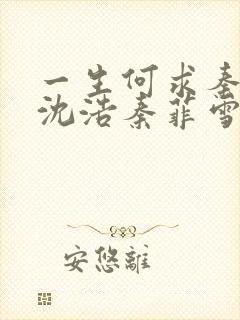 一生何求秦
沈浩秦菲雪
安悠離